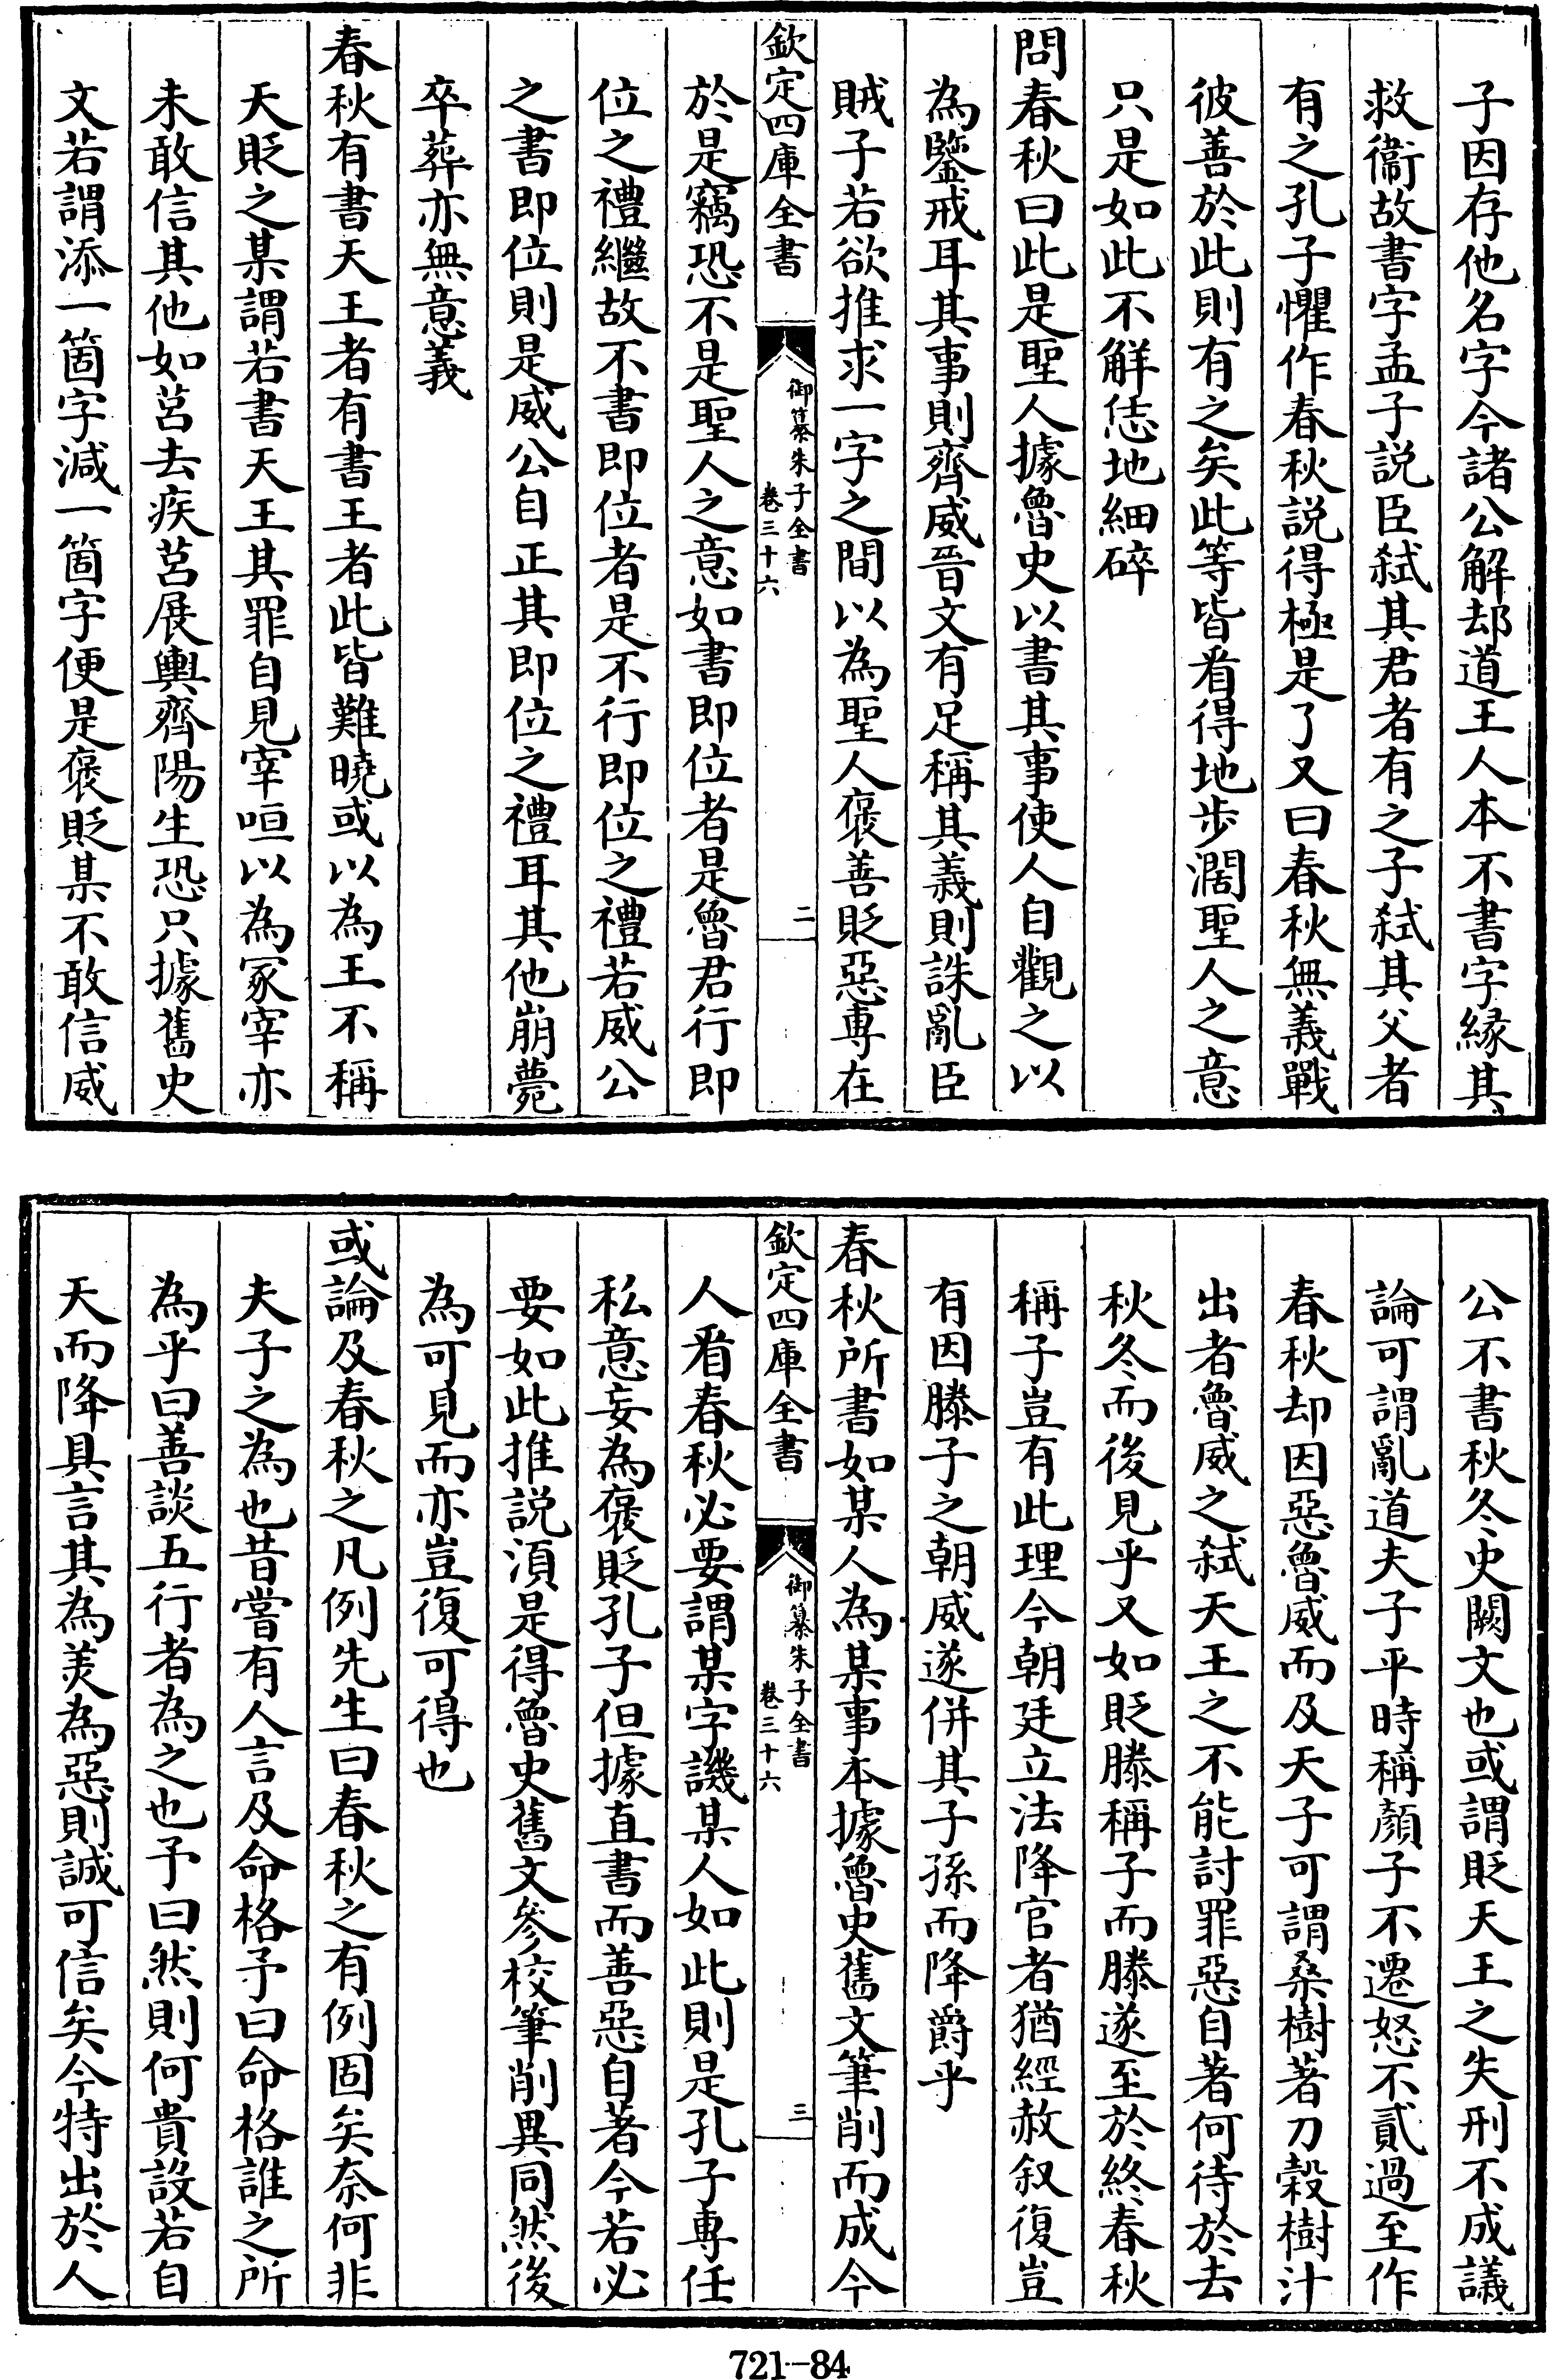 子因存他名字今諸公解却道王人本不書字緣其
救衞故書字孟子説臣弑其君者有之子弑其父者
有之孔子懼作春秋説得極是了又曰春秋無義戰
彼善於此則有之矣此等皆看得地步濶聖人之意
只是如此不解恁地細碎
問春秋曰此是聖人據魯史以書其事使人自觀之以
為鑒戒耳其事則齊威晉文有足稱其義則誅亂臣
賊子若欲推求一字之間以為聖人褒善貶惡專在
欽定四庫全書
御纂朱子全書
卷三十六
二
於是竊恐不是聖人之意如書即位者是魯君行即
位之禮繼故不書即位者是不行即位之禮若威公
之書即位則是威公自正其即位之禮耳其他崩薨
卒葬亦無意義
春秋有書天王者有書王者此皆難曉或以為王不稱
天貶之某謂若書天王其罪自見宰咺以為冢宰亦
未敢信其他如莒去疾莒展輿齊陽生恐只據舊史
文若謂添一箇字減一箇字便是褒貶某不敢信威
公不書秋冬史闕文也或謂貶天王之失刑不成議
論可謂亂道夫子平時稱顏子不遷怒不貳過至作
春秋却因惡魯威而及天子可謂桑樹著刀榖樹汁
出者魯威之弑天王之不能討罪惡自著何待於去
秋冬而後見乎又如貶滕稱子而滕遂至於終春秋
稱子豈有此理今朝廷立法降官者猶經赦叙復豈
有因滕子之朝威遂併其子孫而降爵乎
春秋所書如某人為某事本據魯史舊文筆削而成今
欽定四庫全書
御纂朱子全書
卷三十六
三
人看春秋必要謂某字譏某人如此則是孔子專任
私意妄為褒貶孔子但據直書而善惡自著今若必
要如此推説湏是得魯史舊文參校筆削異同然後
為可見而亦豈復可得也
或論及春秋之凡例先生曰春秋之有例固矣奈何非
夫子之為也昔嘗有人言及命格予曰命格誰之所
為乎曰善談五行者為之也予曰然則何貴設若自
天而降具言其為美為惡則誠可信矣今特出於人
721-84